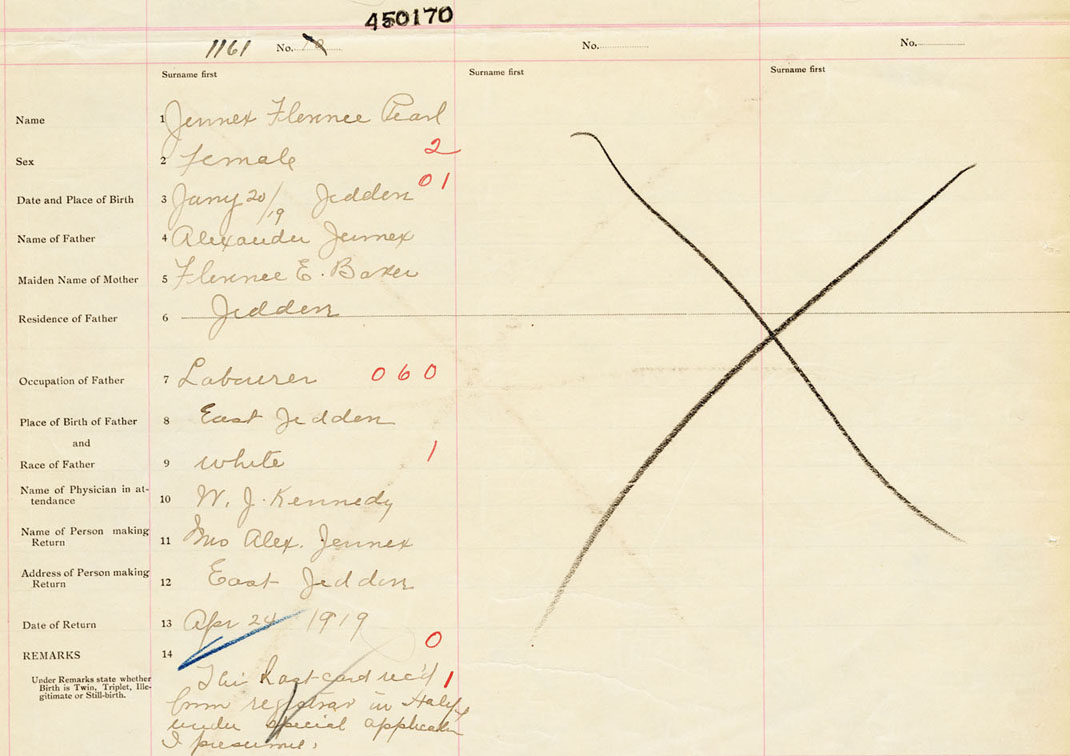 450170
1161 No. No. No.
Surname first Surname first Surname first
Name 1 Jennex Florence Pearl
Sex 2 Female 2
Date and Place of Birth 3 Jany 20/19 Jeddore 01
Name of Father 4 Alexander Jennex
Maiden Name of Mother 5 Florence E. Baker
Residence of Father 6 Jeddore
Occupation of Father 7 Labourer 060
Place of Birth of Father 8 East Jeddore
and
Race of Father 9 white 1
Name of Physician in at-
tendance 10 W. J. Kennedy
Name of Person making
Return 11 Mrs Alex. Jennex
Address of Person making
Return 12 East Jeddore
Date of Return 13 Apr 24 1919
REMARKS 14 0
Under Remarks state whether
Birth is Twin, Triplet, Ille-
gitimate or Still-birth.
This last card rec'd 1
from registrar in Halifx
under special applicatn
I presume.